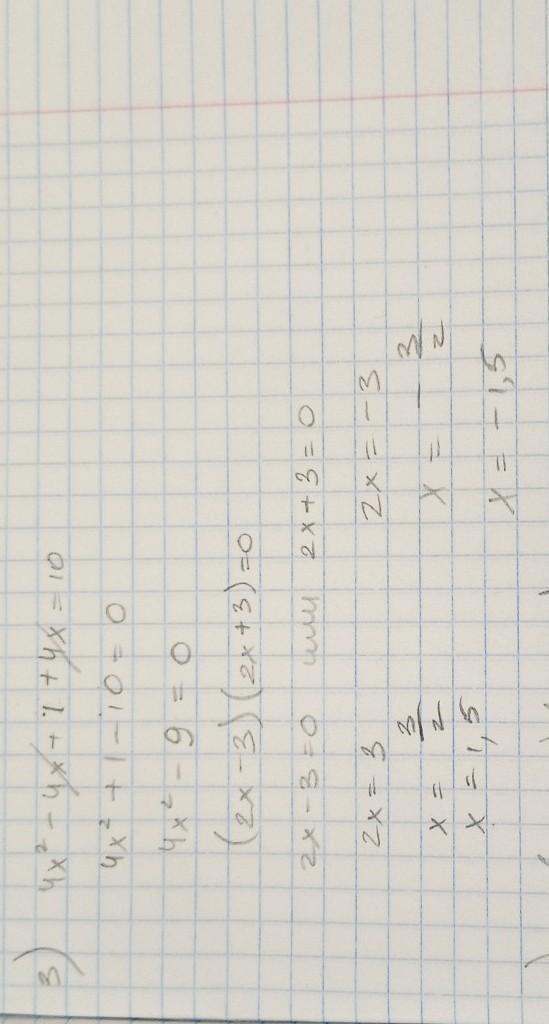 3) 4x² - 4x + 1 + 4x = 10
4x² + 1 - 10 = 0
4x² - 9 = 0
(2x - 3)(2x + 3) = 0
2x - 3 = 0 или 2x + 3 = 0
2x = 3 2x = -3
x = 3/2 x = - 3/2
x = 1,5 x = -1,5